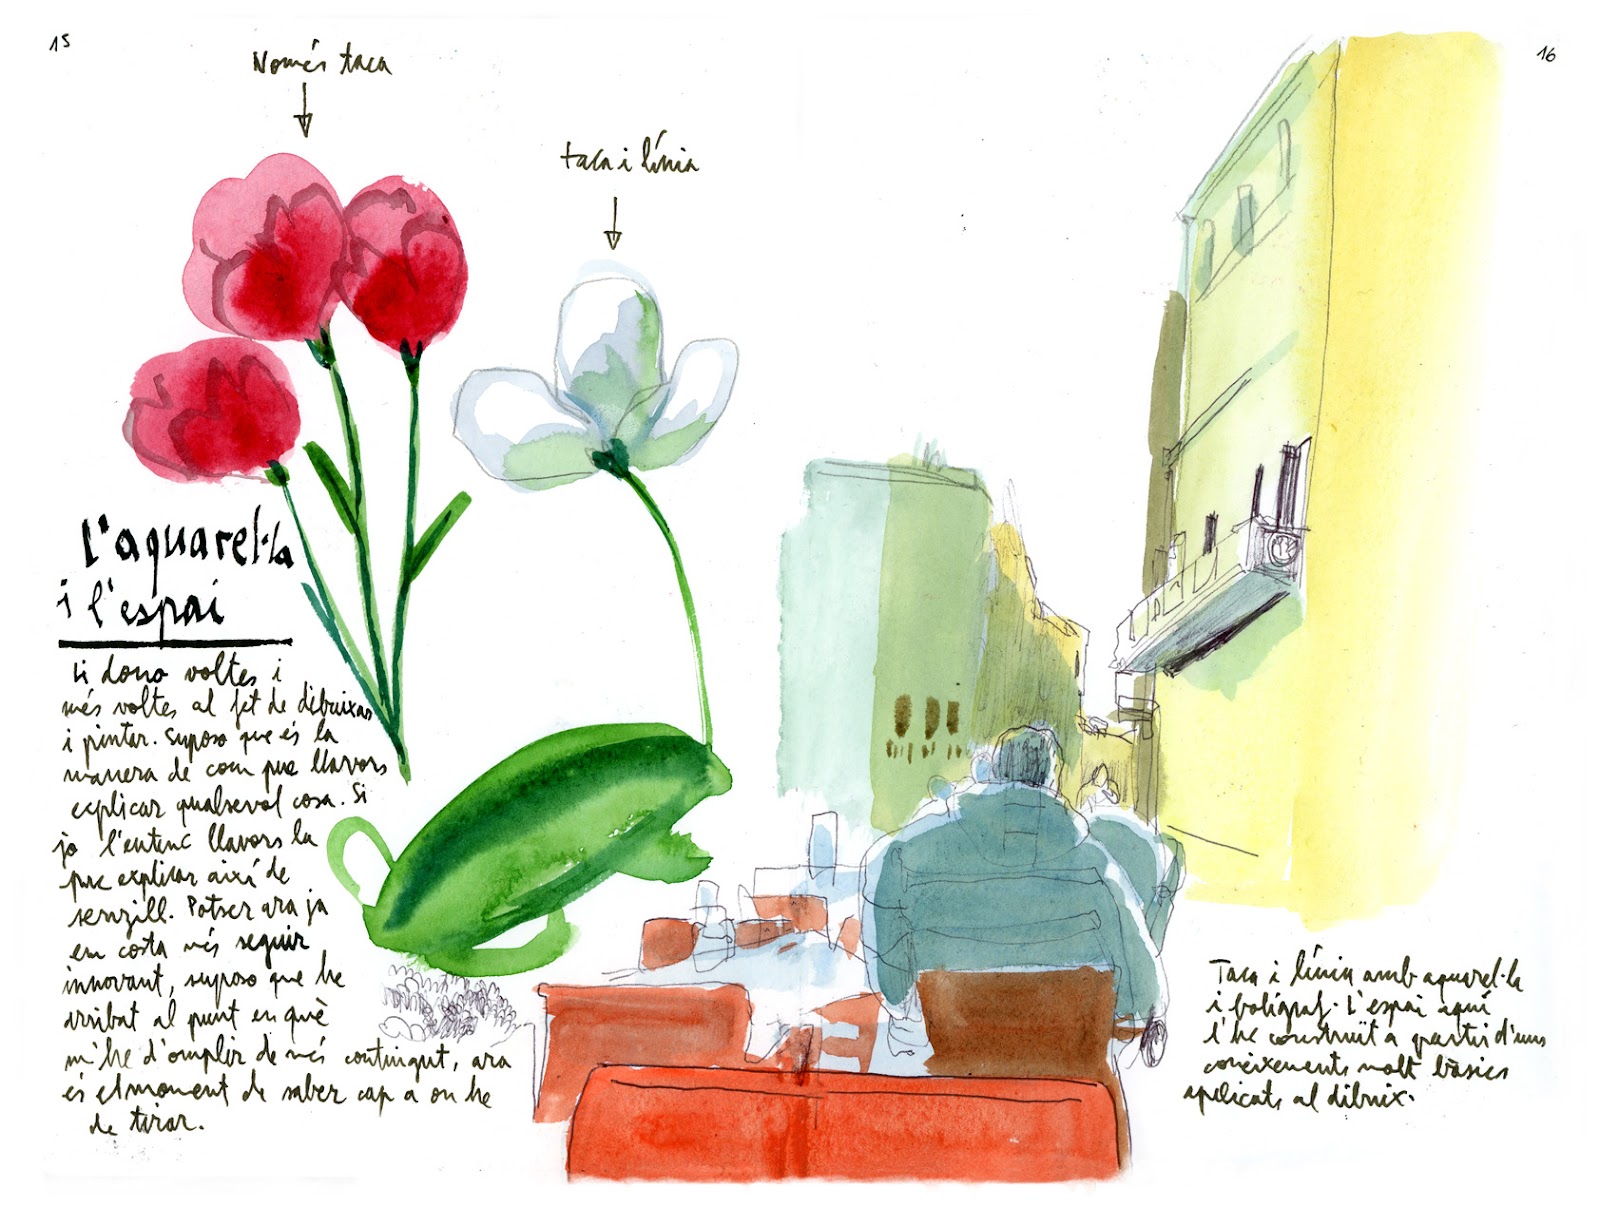 15
Només taca
taca i línia
16
l'aquarel·la
i l'espai
Li dono voltes i
més voltes al fet de dibuixar
i pintar. Suposo que és la
manera de com puc llavors
explicar qualsevol cosa. Si
jo l'entenc llavors la
puc explicar així de
senzill. Potser ara ja
em costa més seguir
innovant, suposo que he
arribat al punt en què
m'he d'omplir de més contingut, ara
és el moment de saber cap a on he
de tirar.
Taca i línia amb aquarel·la
i bolígraf. L'espai aquí
l'he construït a partir d'uns
coneixements molt bàsics
aplicats al dibuix.